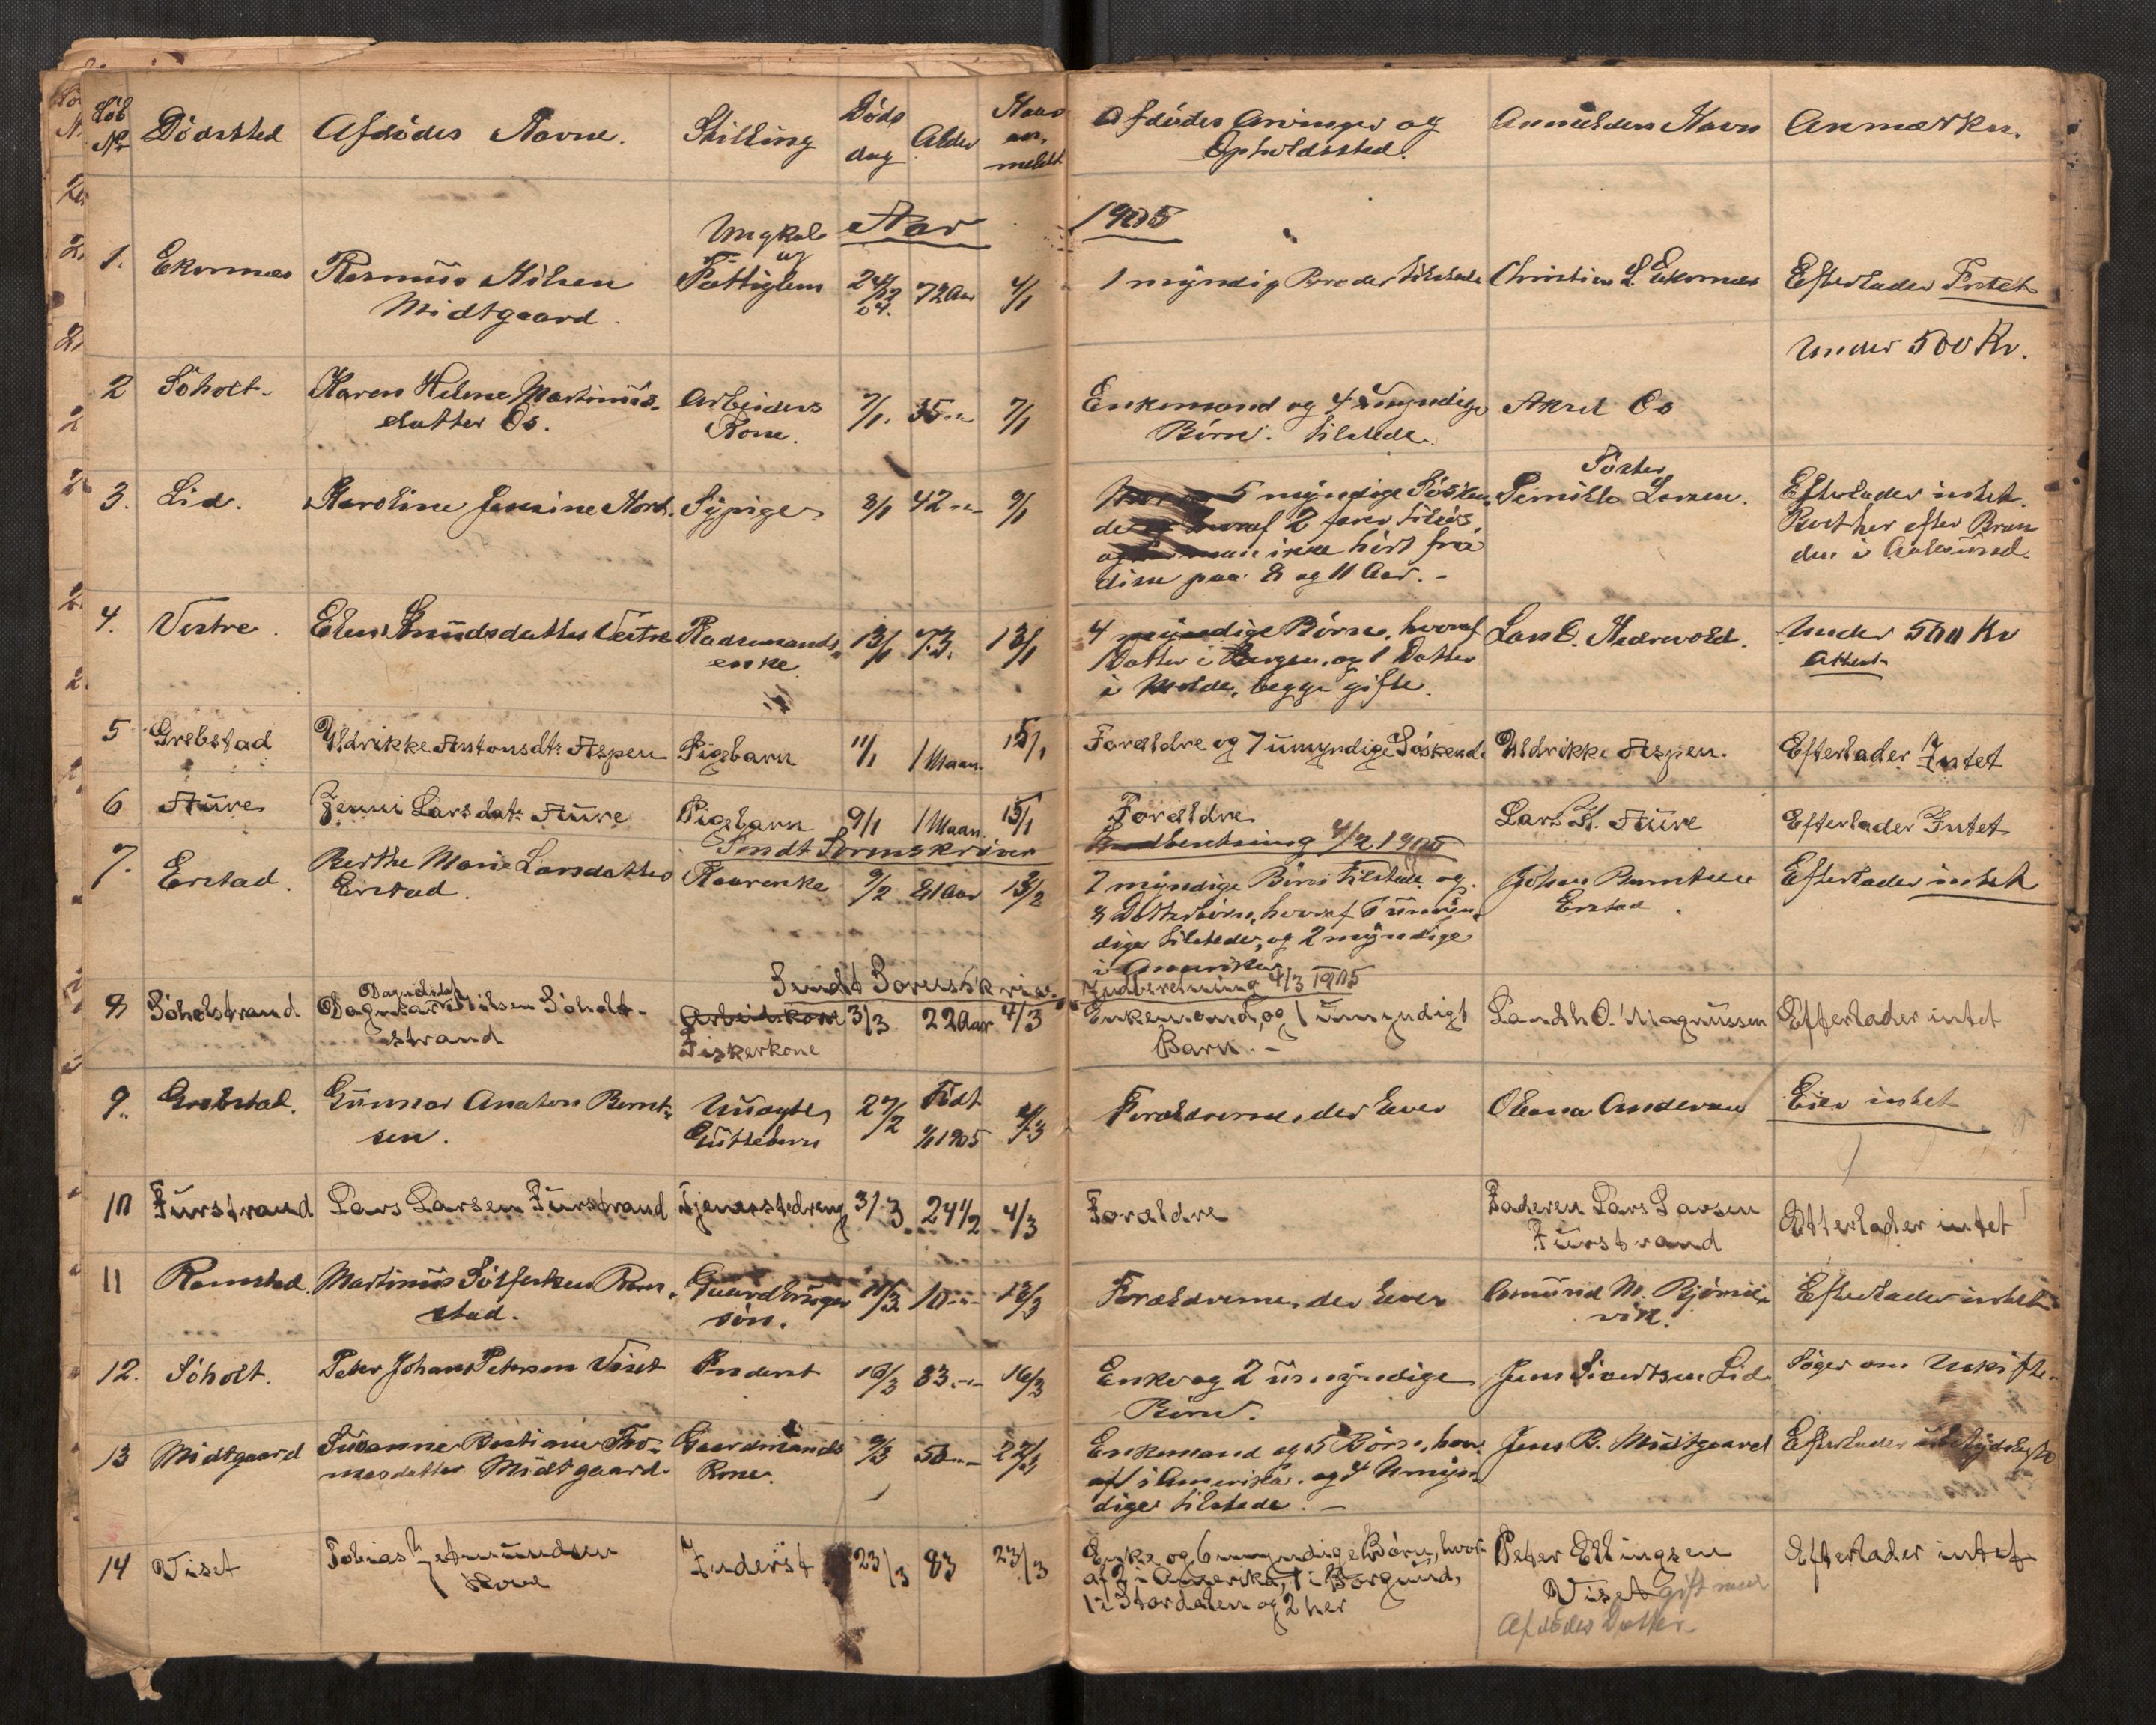 Løb Nr Dødssted Afdødes Navne. Stilling Døds dag Alder Naar an- meldt Afdødes Arvinger og Opholdssted. Anmelders Navn Anmærkn.
Aar 1905
1. Ekornæs Rasmus Nilsen Midtgaard. Ungkal og Fattiglem 24/12 04. 72 Aar 4/1 1 myndig Broder tilstede Christian L. Ekornæs Efterlader Intet
Under 500 Kr.
2 Søholt. Karen Helene Martinus- datter Os. Arbeiders Kone. 7/1. 35 " 7/1 Enkemand og 4 umyndige Børn. tilstede. Aksel Os
3. Lid. Karoline Jensine Nord. Sypige 8/1 42 " 9/1 5 myndige Søsken- de hvoraf 2 farer tilsøs, og ikke hørt fra disse paa 8 og 11 Aar. - Søster Pernille Larsen. Efterlader intet. Rest her efter Bran den i Aalesund.
4. Vestre. Knudsdatter Vestre Kaarmands enke. 13/1 73. 13/1 4 myndige Børn, hvoraf 1 Datter i Bergen, og 1 Datter i Molde, begge gifte. Lars O. Nedrevold. Under 500 Kr Attest
5 Grebstad Uldrikke Antonsdt: Aspen Pigebarn 11/1 1 Maan. 15/1 Forældre og 7 umyndige Søskende Uldrikke Aspen. Efterlader Intet
6 Aure Jenni Larsdat: Aure Pigebarn 9/1 1 Maan. 15/1 Forældre Lars K. Aure Efterlader Intet
Sendt Sorenskriver Indberetning 4/2 1905
7. Erstad. Berthe Marie Larsdatter Erstad. Kaarenke 9/2 81 Aar 13/2 7 myndige Børn tilstede og 8 Datterbørn, hvoraf 6 umyn- dige tilstede, og 2 myndige i Amerika Johan Berntsen Erstad. Efterlader intet
Sendt Sorensskriv. Indberetning 4/3 1905
8 Søholtstrand Dagmar Nilsen Søholt- strand Arbeidskone Fiskerkone 3/3 22 Aar 4/3 Enkemand, og 1 umyndigt Barn. - O. Magnussen Efterlader intet
9. Grebstad. Gunnar Anaton Bernt- sen. Uuægte Guttebarn 27/2 Født 1/1 1905 4/3 Forældrerne, der lever Oleana Andersen Eier intet
10 Furstrand Lars Larsen Furstrand Tjenestedreng 3/3 24 1/2 4/3 Forældre Faderen Lars Larsen Furstrand Efterlader intet
11 Ramstad. Martinus Sølfesten Ram- stad. Gaardbruger søn. 11/3 10 " 13/3 Forældrerne, der lever Amund M. Bjørne- vik. Efterlader intet
12. Søholt. Peter Johan Petersen Viset Inderst 16/3 33 " 16/3 Enke og 2 umyndige Børn. Jens Sivertsen Lid Søger om Uskifte
13 Midtgaard Susanne Bastiane Tho- masdatter Midtgaard. Gaardmands Kone. 9/3 50 " 22/3 Enkemand og 5 Børn, hvor af 1 i Amerika. og 4 Umyn- dige tilstede. - Jens B. Midtgaard Efterlader
14 Viset Tobias Jetmundsen Hove Inderst 23/3 83 23/3 Enke og 6 myndige Børn, hvor- af 2 i Amerika, 1 i Borgund, 1 i Stordalen og 2 her Peter Ellingsen Viset gift med Afdødes Datter. Efterlader intet